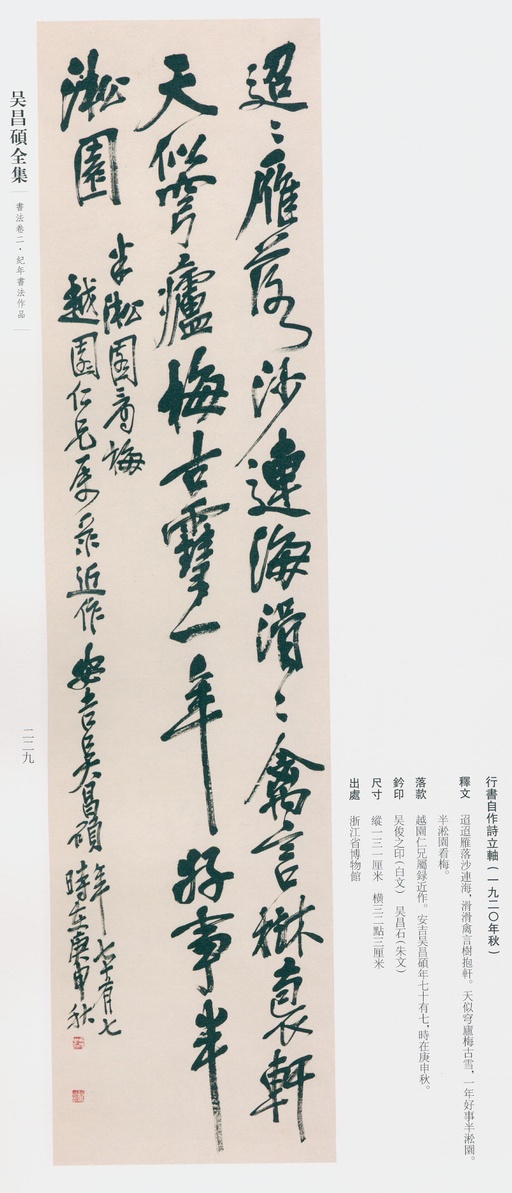 迢〻雁落沙連海滑〻禽言樹袌軒
天似穹廬梅古雪一年好事半
淞園
半淞園看梅
越園仁兄属彔近作安吉吴昌碩年七十有七
時在庚申秋
行書自作詩立軸(一九二〇年秋)
釋文 迢迢雁落沙連海，滑滑禽言樹抱軒。天似穹廬梅古雪，一年好事半淞園。
半淞園看梅。
落款 越園仁兄屬録近作。安吉吴昌碩年七十有七，時在庚申秋。
鈐印 吴俊之印(白文) 吴昌石(朱文)
尺寸 縱一三一厘米 横三二點三厘米
出處 浙江省博物館
吴昌碩全集
書法卷二·紀年書法作品
二二九